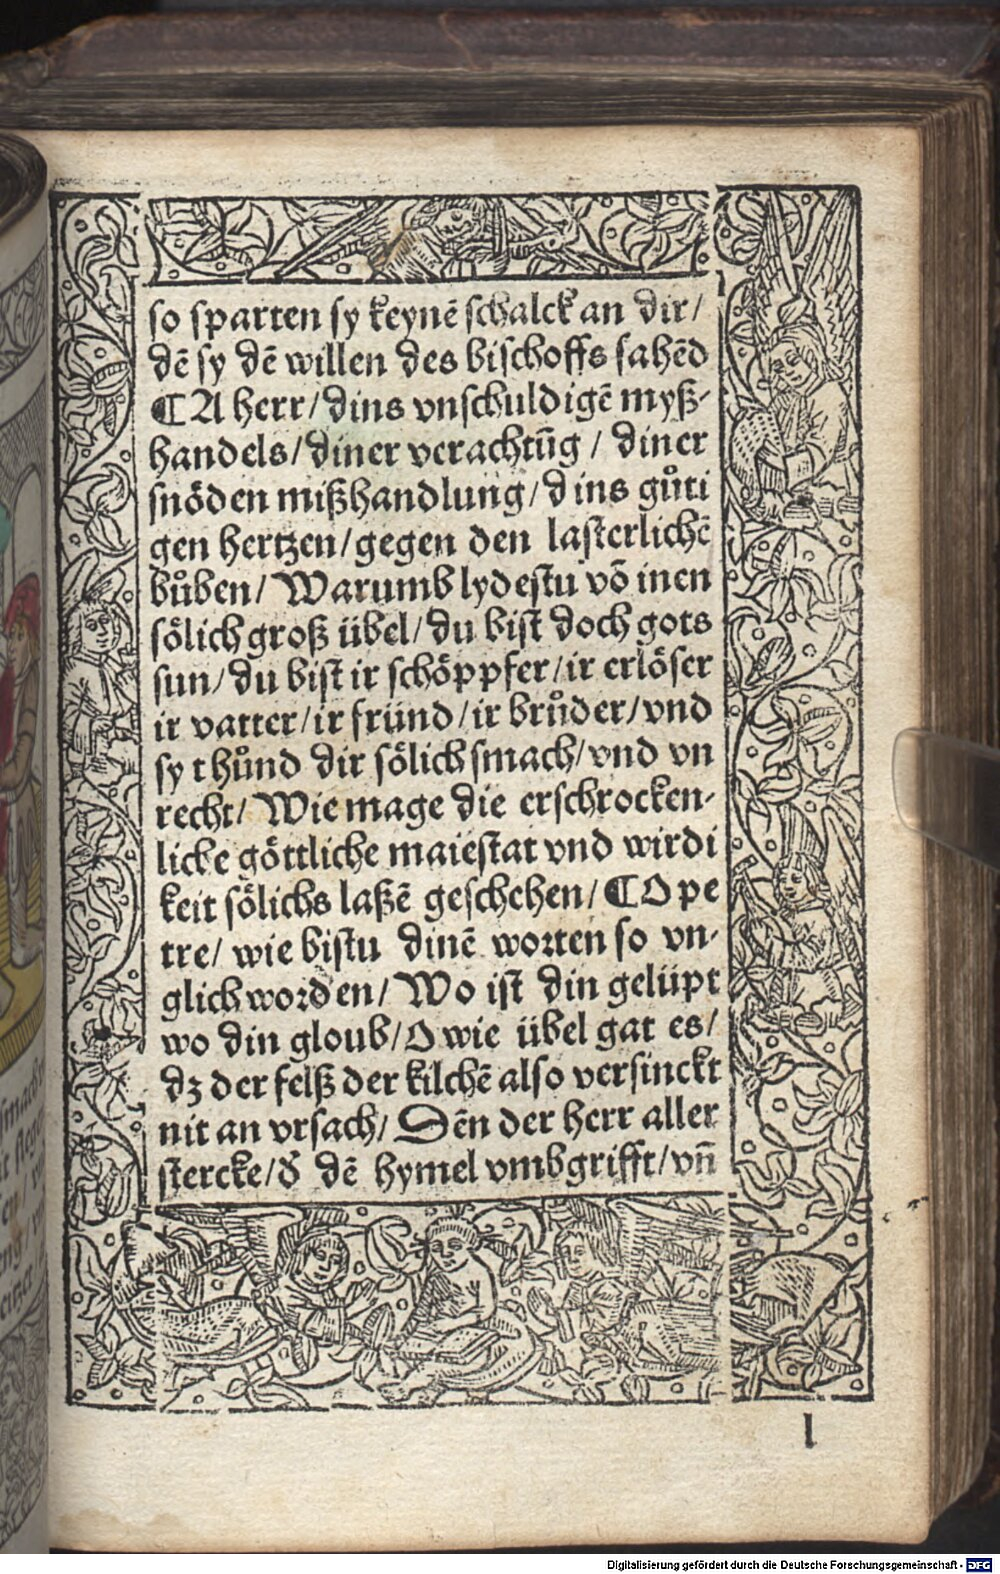 so sparten sy keynē schalck an dir/
dē sy dē willen des bischoffs sahēd
¶ A herr/ dins vnschuldigē myß-
handels/ diner verachtūg / diner
snöden mißhandlung/ dins gůti
gen hertzen/ gegen den lasterlichē
bůben/ Warumb lydestu vō inen
sölich groß übel/ du bist doch gots
sun/ du bist ir schöppfer/ ir erlöser
ir vatter/ ir fründ/ ir brůder/ vnd
sy thůnd dir sölich smach/ vnd vn
recht/ Wie mage die erschrocken-
licke göttliche maiestat vnd wirdi
keit sölichs laßē geschehen/ ¶ O pe
tre/ wie bistu dinē worten so vn-
glich worden/ Wo ist din gelüpt
wo din gloub/ O wie übel gat es/
dz der felß der kilchē also versinckt
nit an vrsach/ Dēn der herr aller
stercke/ d' dē hymel vmbgrifft/ vn̄
l
Digitalisierung gefördert durch die Deutsche Forschungsgemeinschaft - DFG